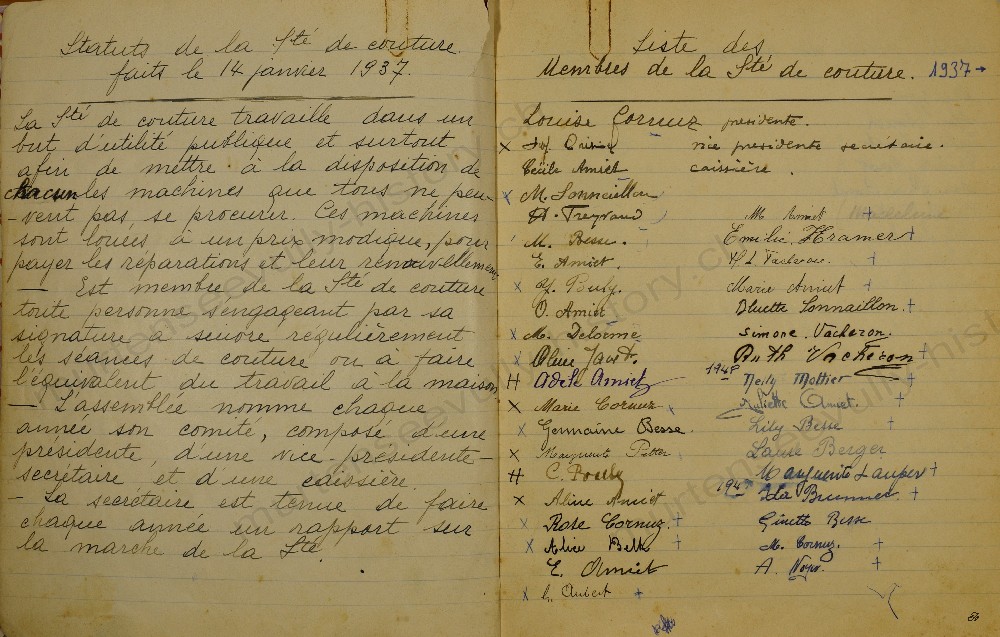 Statuts de la Sté de couture
faits le 14 janvier 1937.
La Sté de couture travaille dans un
but d'utilité publique et surtout
afin de mettre à la disposition de
chacun les machines que tous ne peu-
-vent pas se procurer. Ces machines
sont louées à un prix modique, pour
payer les réparations et leur renouvellement
— Est membre de la Sté de couture
toute personne s'engageant par sa
signature a suivre régulièrement
les séances de couture ou à faire
l'équivalent du travail à la maison
— L'assemblée nomme chaque
année son comité, composé d'une
présidente, d'une vice-présidente-
-secrétaire et d'une caissière.
— La secrétaire est tenue de faire
chaque année un rapport sur
la marche de la Sté.
Liste des
Membres de la Sté de couture. 1937→
Louise Cornuz présidente.
vice présidente secrétaire.
Cécile Amiet caissière.
M. Sonnaillon
Treyvaud
M. Besse.
E. Amiet.
O. Amiet
M. Delorme
Adèle Amiet
Marie Cornuz
Germaine Besse
Marguerite
C.
Aline Amiet
Rose Cornuz +
Alice +
E. Amiet
Aubert +
M. Amiet +
Emilie Kramer +
Vacheron +
Marie Amiet +
Bluette Sonnaillon +
Simone Vacheron.
Ruth Vacheron +
1948 Nelly Mottier +
Juliette Amiet. +
Lily Besse +
Laure Berger
Marguerite Lauper +
Ida Brunner +
Ginette Besse
M. Cornuz. +
A. +